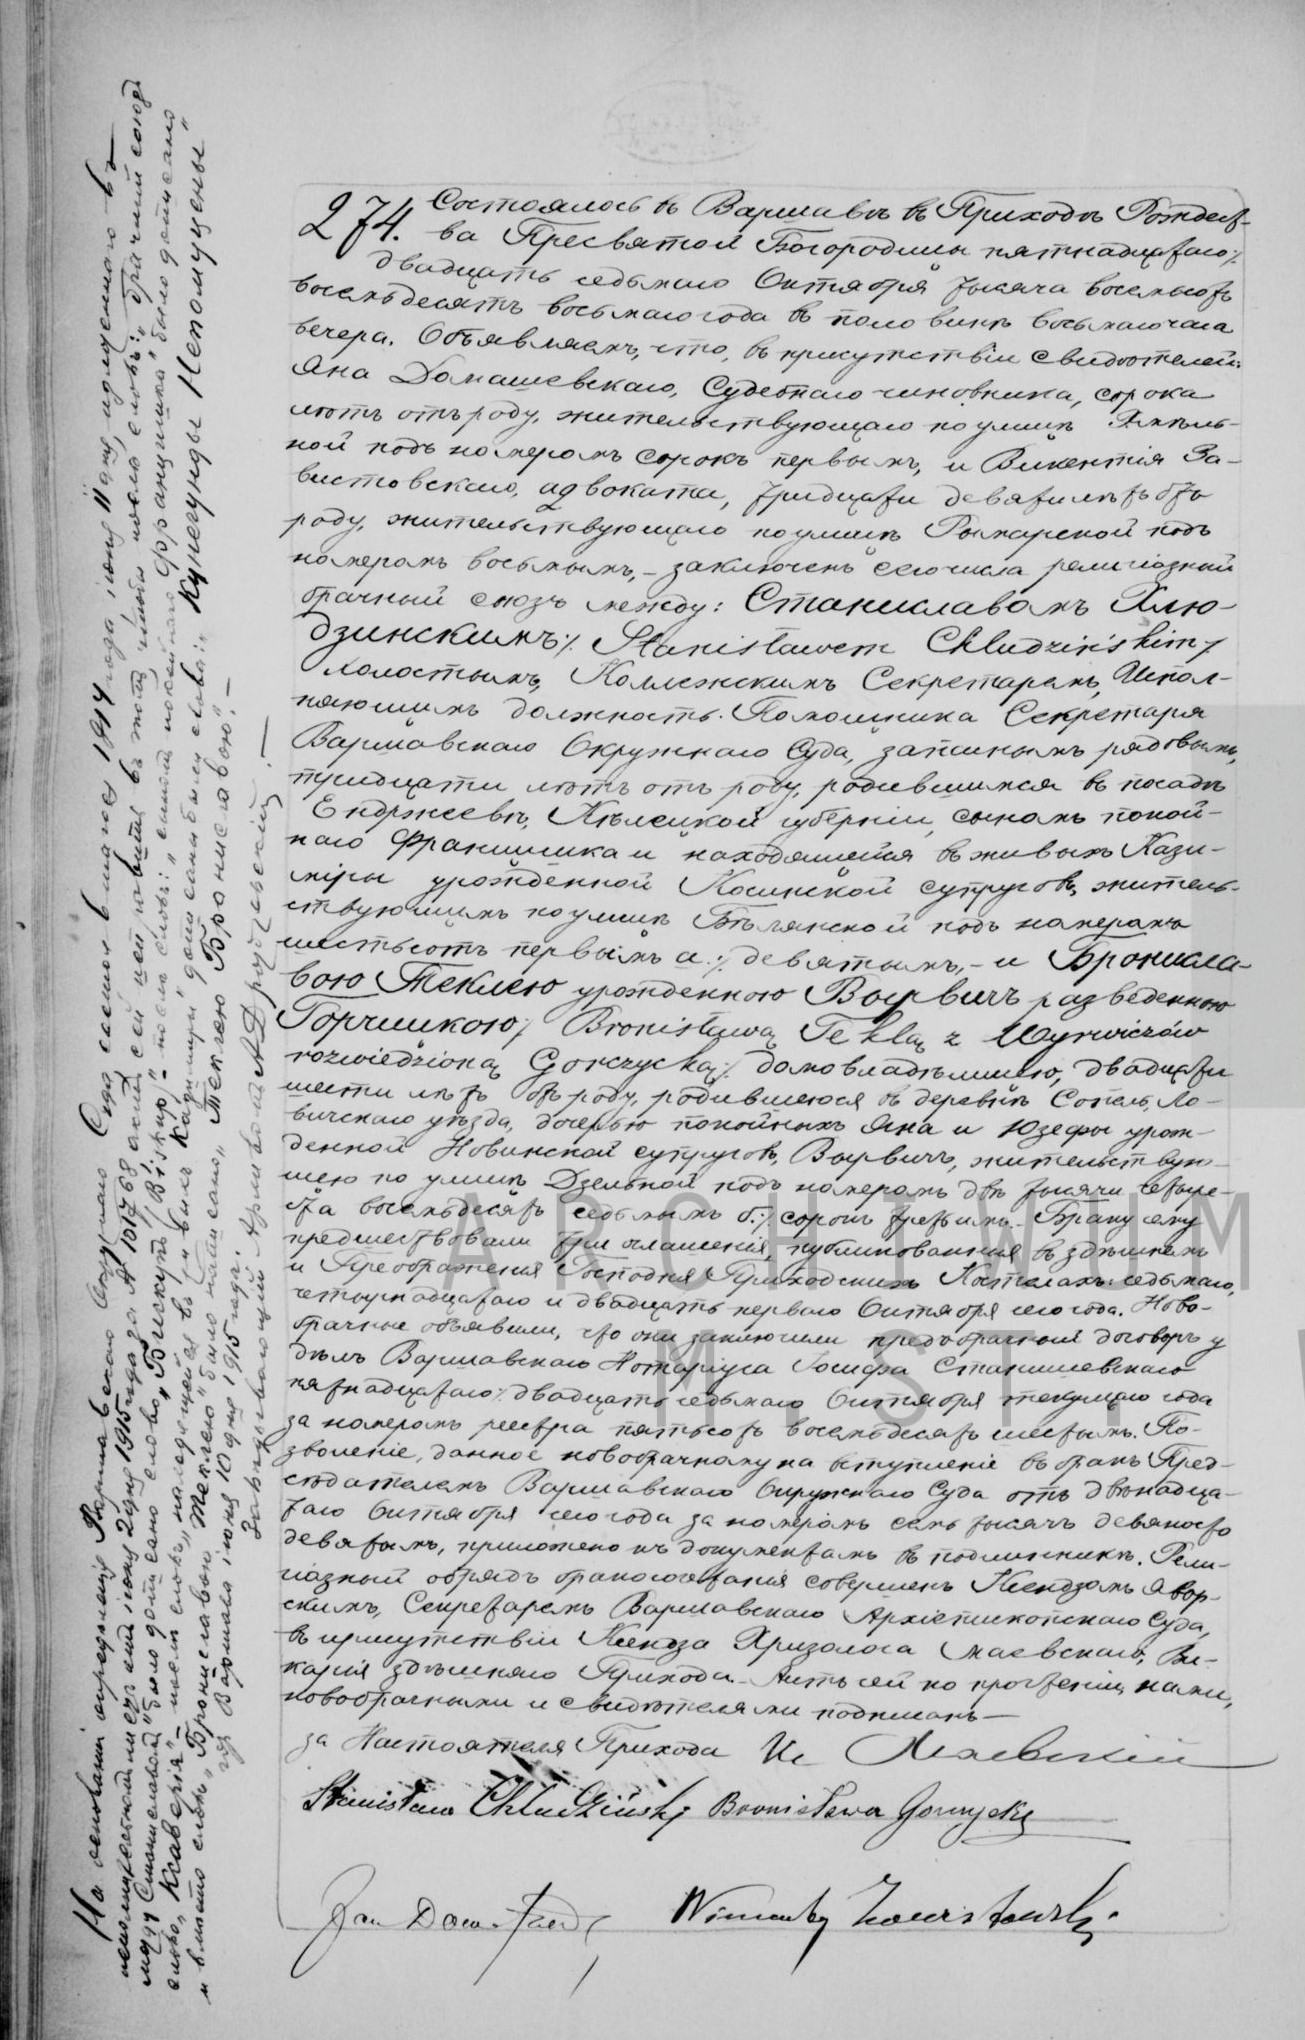 274. Состоялось въ Варшавѣ въ Приходѣ Рождест-
ва Пресвятой Богородицы пятнадцатаго /
двадцать седьмаго Октября тысяча восемьсотъ
восемьдесятъ восьмаго года въ половинѣ восьмаго часа
вечера. Объявляемъ, что, въ присутствіи свидѣтелей:
Яна Домашевскаго, Судебнаго чиновника, сорока
лѣтъ отъ роду, жительствующаго по улицѣ Хмѣль-
ной подъ номеромъ сорокъ первымъ, и Викентія За-
вистовскаго, адвоката, тридцати девяти лѣтъ отъ
роду, жительствующаго по улицѣ Рымарской подъ
номеромъ восьмымъ, – заключенъ сего числа религіозный
брачный союзъ между: Станиславомъ Хлю-
дзинскимъ /. Stanisławem Chludzińskim /
холостымъ, Коллежскимъ Секретаремъ, Испол-
няющимъ должность Помощника Секретаря
Варшавскаго Окружнаго Суда, запаснымъ рядовымъ,
тридцати лѣтъ отъ роду, родившимся въ посадѣ
Ендржеевѣ, Кѣлецкой губерніи, сыномъ покой-
наго Францишка и находящейся въ живыхъ Кази-
міры урожденной Косинской супруговъ, житель-
ствующимъ по улицѣ Бѣлянской подъ номеромъ
шестьсотъ первымъ а /. девятымъ, – и Бронисла-
вою Теклею урожденною Вырвичъ разведенною
Горчицкою / Bronisławą Teklą z Wyrwiczów
rozwiedzioną Gorczycką /. домовладѣлицею, двадцати
шести лѣтъ отъ роду, родившеюся въ деревнѣ Сопель, Ло-
вичскаго уѣзда, дочерью покойныхъ Яна и Юзефы урож-
денной Новинской супруговъ Вырвичъ, жительствую-
щею по улицѣ Дзельной подъ номеромъ двѣ тысячи четыре-
ста восемьдесятъ седьмымъ б. /. сорокъ третьимъ. Браку сему
предшествовали три оглашенія, публикованныя въ здѣшнемъ
и Преображенія Господня Приходскихъ Костелахъ: седьмаго,
четырнадцатаго и двадцать перваго Октября сего года. Ново-
брачные объявили, что они заключили предбрачный договоръ у
дѣлъ Варшавскаго Нотаріуса Іосифа Станишевскаго
пятнадцатаго / двадцать седьмаго Октября текущаго года
за номеромъ реестра пятьсотъ восемьдесятъ шестымъ. По-
зволеніе, данное новобрачному на вступленіе въ бракъ Пред-
сѣдателемъ Варшавскаго Окружнаго Суда отъ двѣнадца-
таго Октября сего года за номеромъ семь тысячъ девяносто
девятымъ, приложено къ документамъ въ подлинникѣ. Рели-
гіозный обрядъ бракосочетанія совершенъ Ксендзомъ Явор-
скимъ, Секретаремъ Варшавскаго Архіепископскаго Суда,
въ присутствіи Ксендза Хризолога Маевскаго, Ви-
карія здѣшняго Прихода. Актъ сей по прочтеніи нами,
новобрачными и свидѣтелями подписанъ. –
за Настоятеля Прихода Кс Маевскій
Stanisław Chludziński Bronisława Gorczycka
Jan Wincenty Zawistowski
На основаніи опредѣленія Варшавскаго Окружнаго Суда 1914 года іюня 11 дня,
1915 года іюня 2 дня за № 101768 актъ сей въ томъ, чтобы послѣ словъ: "брачный союзъ
между Станиславомъ" было дописано слово "Бискупъ /Biskup/" – послѣ словъ: "сыномъ покойнаго Францишка" было дописано
слово "Ксаверія" – послѣ словъ "находящейся въ живыхъ Казиміры" дописаны были слова: "Кунегунды Непомуцены"
и вмѣсто словъ "Брониславою Теклею" было написано "Теклею Брониславою". –
гор Варшава іюня 10 дня 1915 года.
Завѣдывающій Архивомъ
ARCHIWUM
M ST W